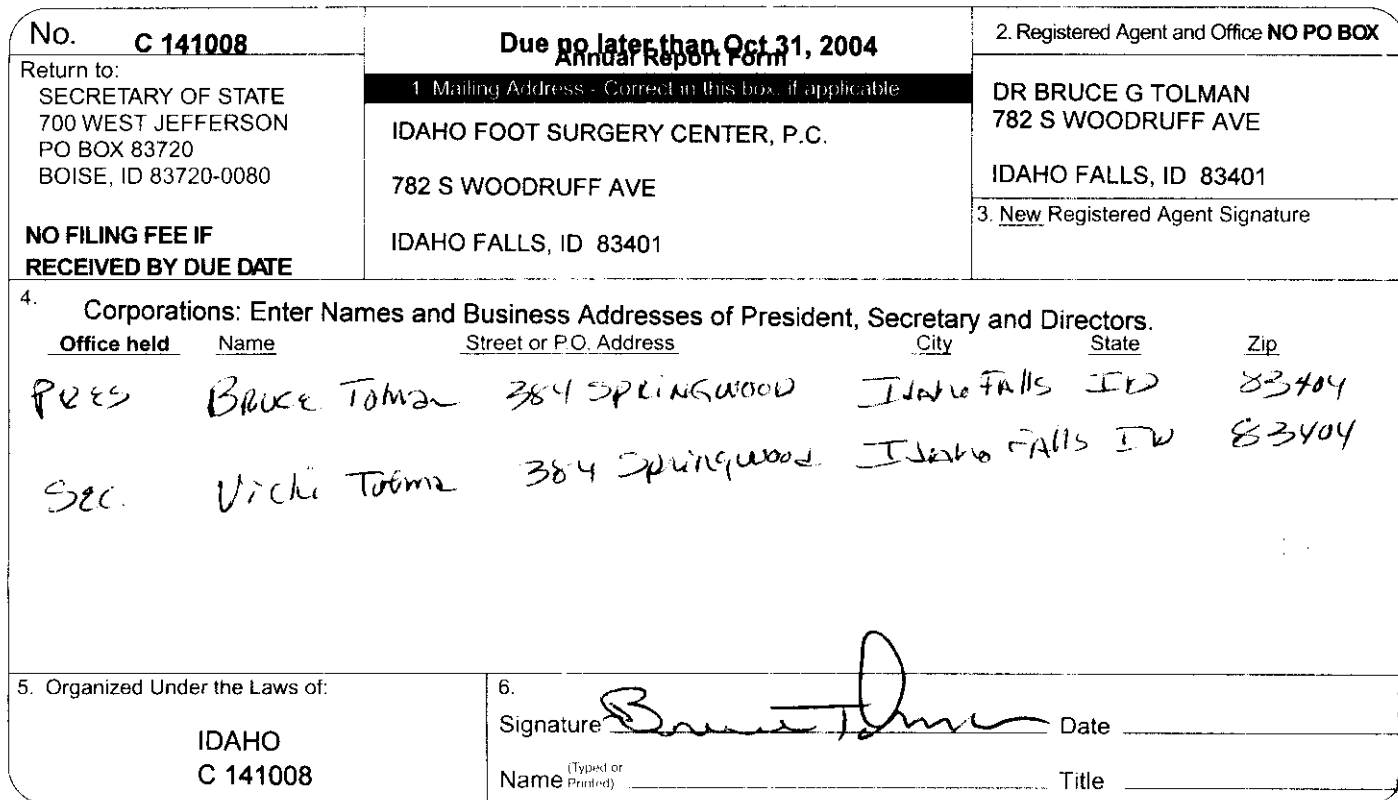 No. C 141008
Return to:
SECRETARY OF STATE
700 WEST JEFFERSON
PO BOX 83720
BOISE, ID 83720-0080
NO FILING FEE IF
RECEIVED BY DUE DATE
Due no later than Oct 31, 2004
Annual Report Form
1. Mailing Address - Correct in this box, if applicable
IDAHO FOOT SURGERY CENTER, P.C.
782 S WOODRUFF AVE
IDAHO FALLS, ID 83401
2. Registered Agent and Office NO PO BOX
DR BRUCE G TOLMAN
782 S WOODRUFF AVE
IDAHO FALLS, ID 83401
3. New Registered Agent Signature
4. Corporations: Enter Names and Business Addresses of President, Secretary and Directors.
Office held Name Street or P.O. Address City State Zip
PRES BRUCE Tolman 384 SPRINGWOOD Idaho FAlls ID 83404
Sec. Vicki Tolman 384 Springwood Idaho FAlls ID 83404
5. Organized Under the Laws of:
IDAHO
C 141008
6.
Signature Bruce Tolman Date
Name (Typed or Printed) Title